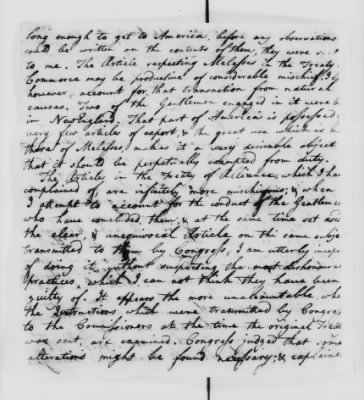 long enough to get to America, before any observations
could be written on the contents of them, they were sent
to me. The Article respecting Melasses in the Treaty
Commerce may be productive of considerable mischief. I
however, account for, that transaction from natural
causes. Two of the Gentlemen engaged in it were
in New England. That part of America is possessed
very few articles of export, & the great use which is
there of Melasses, makes it a very desirable object
that it should be perpetually exempted from duty.
The Article in the Treaty of Alliance, which I ha
complained of are infinitely more mischievous; & when
I attempt to account for the conduct of the Gentlemen
who have concluded them, & at the same time
the clear, & unequivocal Article on the same subje
transmitted to them by Congress, I am utterly incapa
of doing it, without suspecting the most dishonoura
practices, which I can not think they have been
guilty of. It appears the more unaccountable, whe
the Instructions which were transmitted by Congres
to the Commissioners at the time the original Treat
was sent, are examined. Congress judged that some
alterations might be found necessary; & explaine